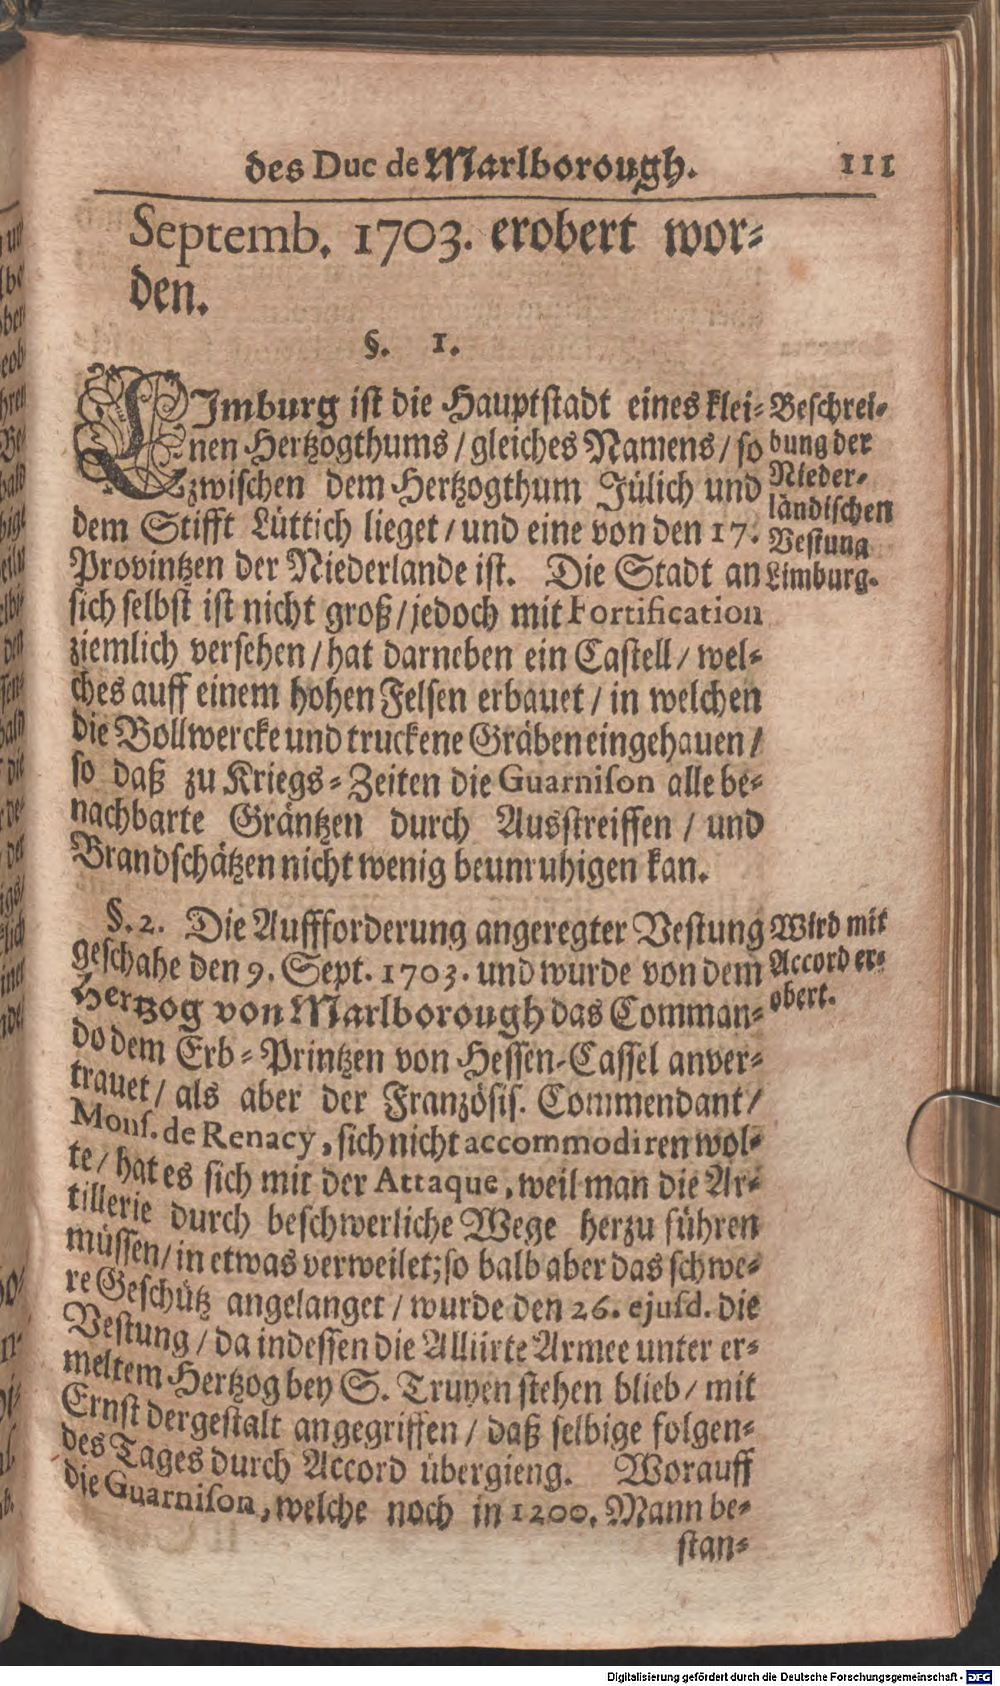 des Duc de Marlborough. 111
Septemb. 1703. erobert wor-
den.
§. 1.
LImburg ist die Hauptstadt eines klei-
nen Hertzogthums / gleiches Namens / so
zwischen dem Hertzogthum Jülich und
dem Stifft Lüttich lieget / und eine von den 17.
Provintzen der Niederlande ist. Die Stadt an
sich selbst ist nicht groß / jedoch mit Fortification
ziemlich versehen / hat darneben ein Castell / wel-
ches auff einem hohen Felsen erbauet / in welchen
die Bollwercke und truckene Gräben eingehauen /
so daß zu Kriegs-Zeiten die Guarnison alle be-
nachbarte Gräntzen durch Ausstreiffen / und
Brandschätzen nicht wenig beunruhigen kan.
Beschrei-
bung der
Nieder-
ländischen
Vestung
Limburg.
§. 2. Die Auffforderung angeregter Vestung
geschahe den 9. Sept. 1703. und wurde von dem
Hertzog von Marlborough das Comman-
do dem Erb-Printzen von Hessen-Cassel anver-
trauet / als aber der Französis. Commendant /
Mons. de Renacy, sich nicht accommodiren wol-
te / hat es sich mit der Attaque, weil man die Ar-
tillerie durch beschwerliche Wege herzu führen
müssen / in etwas verweilet; so balb aber das schwe-
re Geschütz angelanget / wurde den 26. ejusd. die
Vestung / da indessen die Alliirte Armee unter er-
meltem Hertzog bey S. Truyen stehen blieb / mit
Ernst dergestalt angegriffen / daß selbige folgen-
des Tages durch Accord übergieng. Worauff
die Guarnison, welche noch in 1200. Mann be-
stan-
Wird mit
Accord er-
obert.
Digitalisierung gefördert durch die Deutsche Forschungsgemeinschaft - DFG